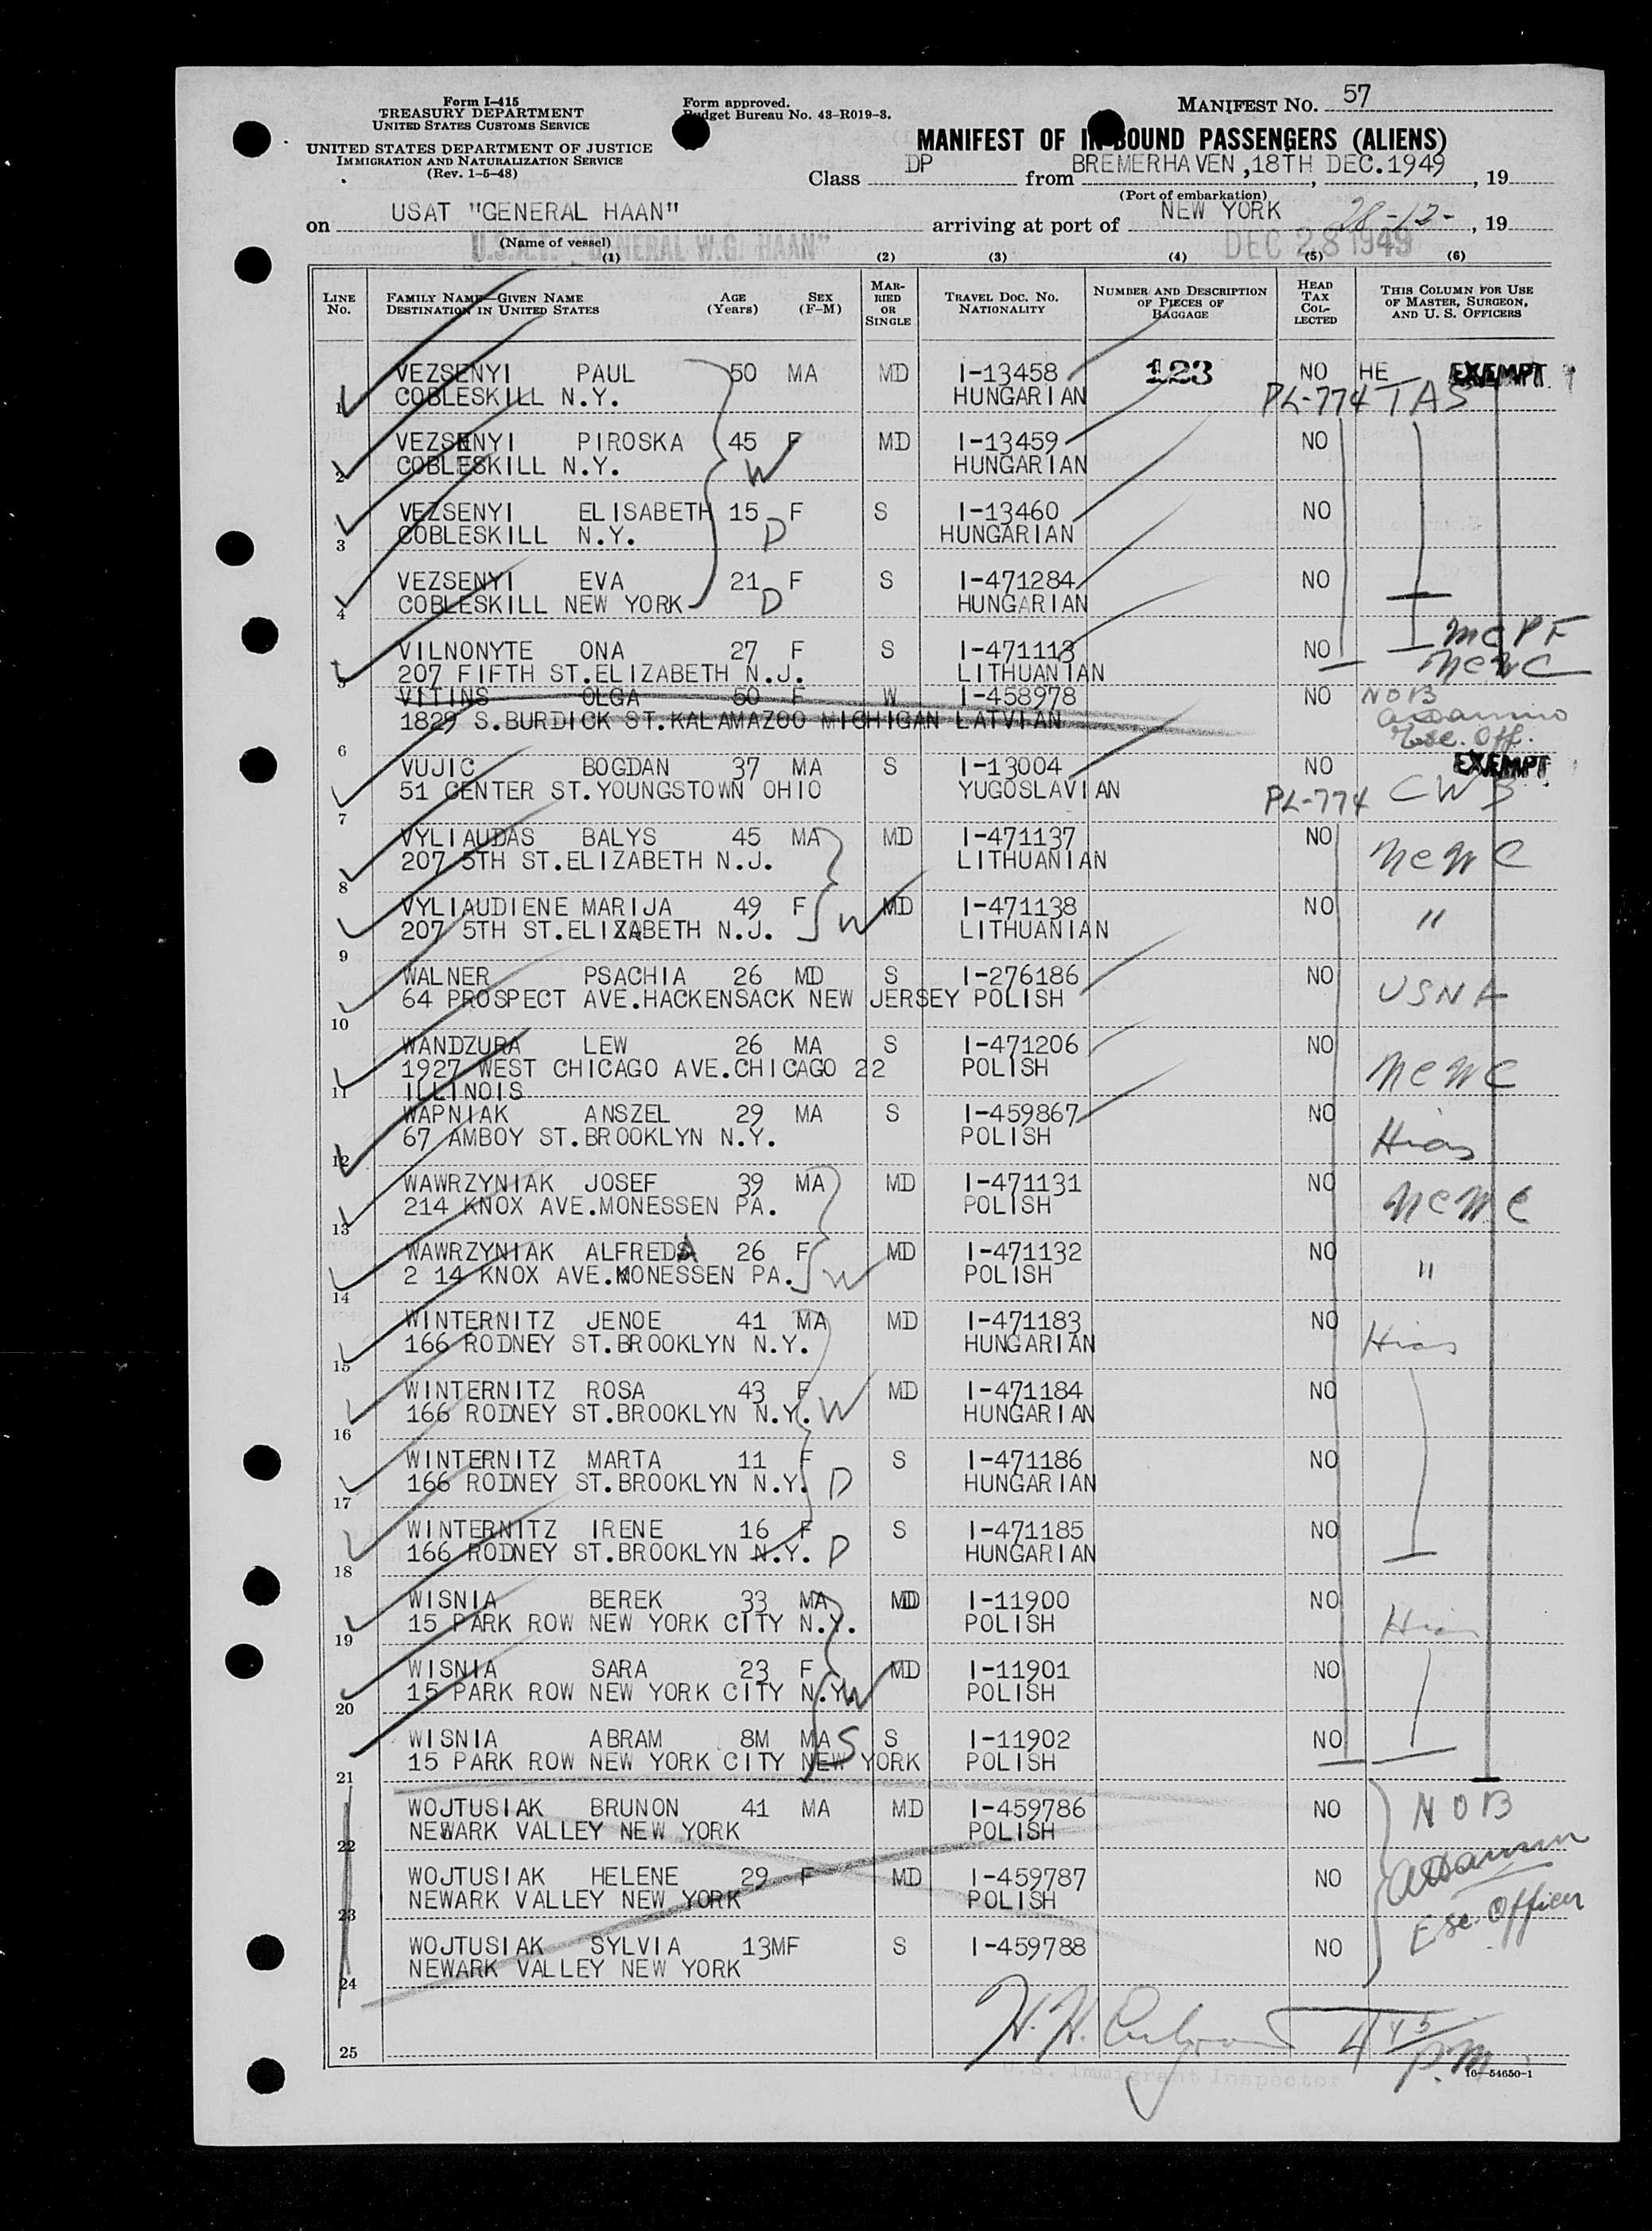 Form I-415
TREASURY DEPARTMENT
UNITED STATES CUSTOMS SERVICE
UNITED STATES DEPARTMENT OF JUSTICE
IMMIGRATION AND NATURALIZATION SERVICE
(Rev. 1-5-48)
Form approved.
Budget Bureau No. 43-R019-3.
MANIFEST NO. 57
MANIFEST OF INBOUND PASSENGERS (ALIENS)
Class DP from BREMERHAVEN, 18TH DEC.1949, 19
(Port of embarkation)
on USAT "GENERAL HAAN" arriving at port of NEW YORK 28-12-, 19
(Name of vessel)
U.S.A.T. "GENERAL W.G. HAAN" DEC 28 1949
(1) (2) (3) (4) (5) (6)
LINE No. FAMILY NAME—GIVEN NAME DESTINATION IN UNITED STATES AGE (Years) SEX (F-M) MARRIED OR SINGLE TRAVEL DOC. NO. NATIONALITY NUMBER AND DESCRIPTION OF PIECES OF BAGGAGE HEAD TAX COLLECTED THIS COLUMN FOR USE OF MASTER, SURGEON, AND U. S. OFFICERS
VEZSENYI PAUL 50 MA MD I-13458 123 NO HE EXEMPT
1 COBLESKILL N.Y. HUNGARIAN PL-774 TAS
VEZSENYI PIROSKA 45 F MD I-13459 NO
2 COBLESKILL N.Y. W HUNGARIAN
VEZSENYI ELISABETH 15 F S I-13460 NO
3 COBLESKILL N.Y. D HUNGARIAN
VEZSENYI EVA 21 F S I-471284 NO
4 COBLESKILL NEW YORK D HUNGARIAN
VILNONYTE ONA 27 F S I-471113 NO McPF
5 207 FIFTH ST.ELIZABETH N.J. LITHUANIAN NCWC
VITINS OLGA 60 F W I-458978 NO NOB
1829 S.BURDICK ST.KALAMAZOO MICHIGAN LATVIAN
6 Esc. Off.
VUJIC BOGDAN 37 MA S I-13004 NO EXEMPT
51 CENTER ST.YOUNGSTOWN OHIO YUGOSLAVIAN PL-774 CWS
7
VYLIAUDAS BALYS 45 MA MD I-471137 NO
207 5TH ST.ELIZABETH N.J. LITHUANIAN NCWC
8
VYLIAUDIENE MARIJA 49 F MD I-471138 NO
207 5TH ST.ELIZABETH N.J. W LITHUANIAN "
9
WALNER PSACHIA 26 MD S I-276186 NO
64 PROSPECT AVE.HACKENSACK NEW JERSEY POLISH USNA
10
WANDZURA LEW 26 MA S I-471206 NO
1927 WEST CHICAGO AVE.CHICAGO 22 POLISH NCWC
11 ILLINOIS
WAPNIAK ANSZEL 29 MA S I-459867 NO
67 AMBOY ST.BROOKLYN N.Y. POLISH Hias
12
WAWRZYNIAK JOSEF 39 MA MD I-471131 NO
214 KNOX AVE.MONESSEN PA. POLISH NCWC
13
WAWRZYNIAK ALFREDA 26 F MD I-471132 NO
2 14 KNOX AVE.MONESSEN PA. W POLISH "
14
WINTERNITZ JENOE 41 MA MD I-471183 NO
166 RODNEY ST.BROOKLYN N.Y. HUNGARIAN Hias
15
WINTERNITZ ROSA 43 F MD I-471184 NO
166 RODNEY ST.BROOKLYN N.Y. W HUNGARIAN
16
WINTERNITZ MARTA 11 F S I-471186 NO
166 RODNEY ST.BROOKLYN N.Y. D HUNGARIAN
17
WINTERNITZ IRENE 16 F S I-471185 NO
166 RODNEY ST.BROOKLYN N.Y. D HUNGARIAN
18
WISNIA BEREK 33 MA MD I-11900 NO
15 PARK ROW NEW YORK CITY N.Y. POLISH Hias
19
WISNIA SARA 23 F MD I-11901 NO
15 PARK ROW NEW YORK CITY N.Y. W POLISH
20
WISNIA ABRAM 8M MA S S I-11902 NO
15 PARK ROW NEW YORK CITY NEW YORK POLISH
21
WOJTUSIAK BRUNON 41 MA MD I-459786 NO NOB
NEWARK VALLEY NEW YORK POLISH
22
WOJTUSIAK HELENE 29 F MD I-459787 NO
NEWARK VALLEY NEW YORK POLISH
23 Esc. Officer
WOJTUSIAK SYLVIA 13MF S I-459788 NO
NEWARK VALLEY NEW YORK
24
H.H. 4 45 P.M.
25
U.S. Immigrant Inspector
16—54650-1